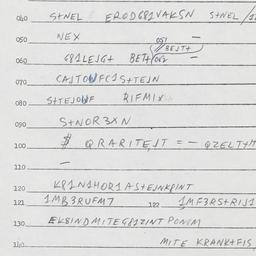 040 S+NEL ERODG81VAKSN S+NEL/
050 NEX —
051 BEJT+
060 G81LEJG+ BET+/062 —
070 CAJTOWFC1S+TEJN
080 S+TEJOWF RIFMIX
090 S+NOR3XN
100 $ QRARITEJT = - QZELT+M
110 —
120 K81N1HOR1AS+EJNKPINT
121 1MB3RUFM7 122 1MF3RS+RIJ1
130 EK8INDMITEG81ZINT PONUM
140 MITE KRANK+FIS